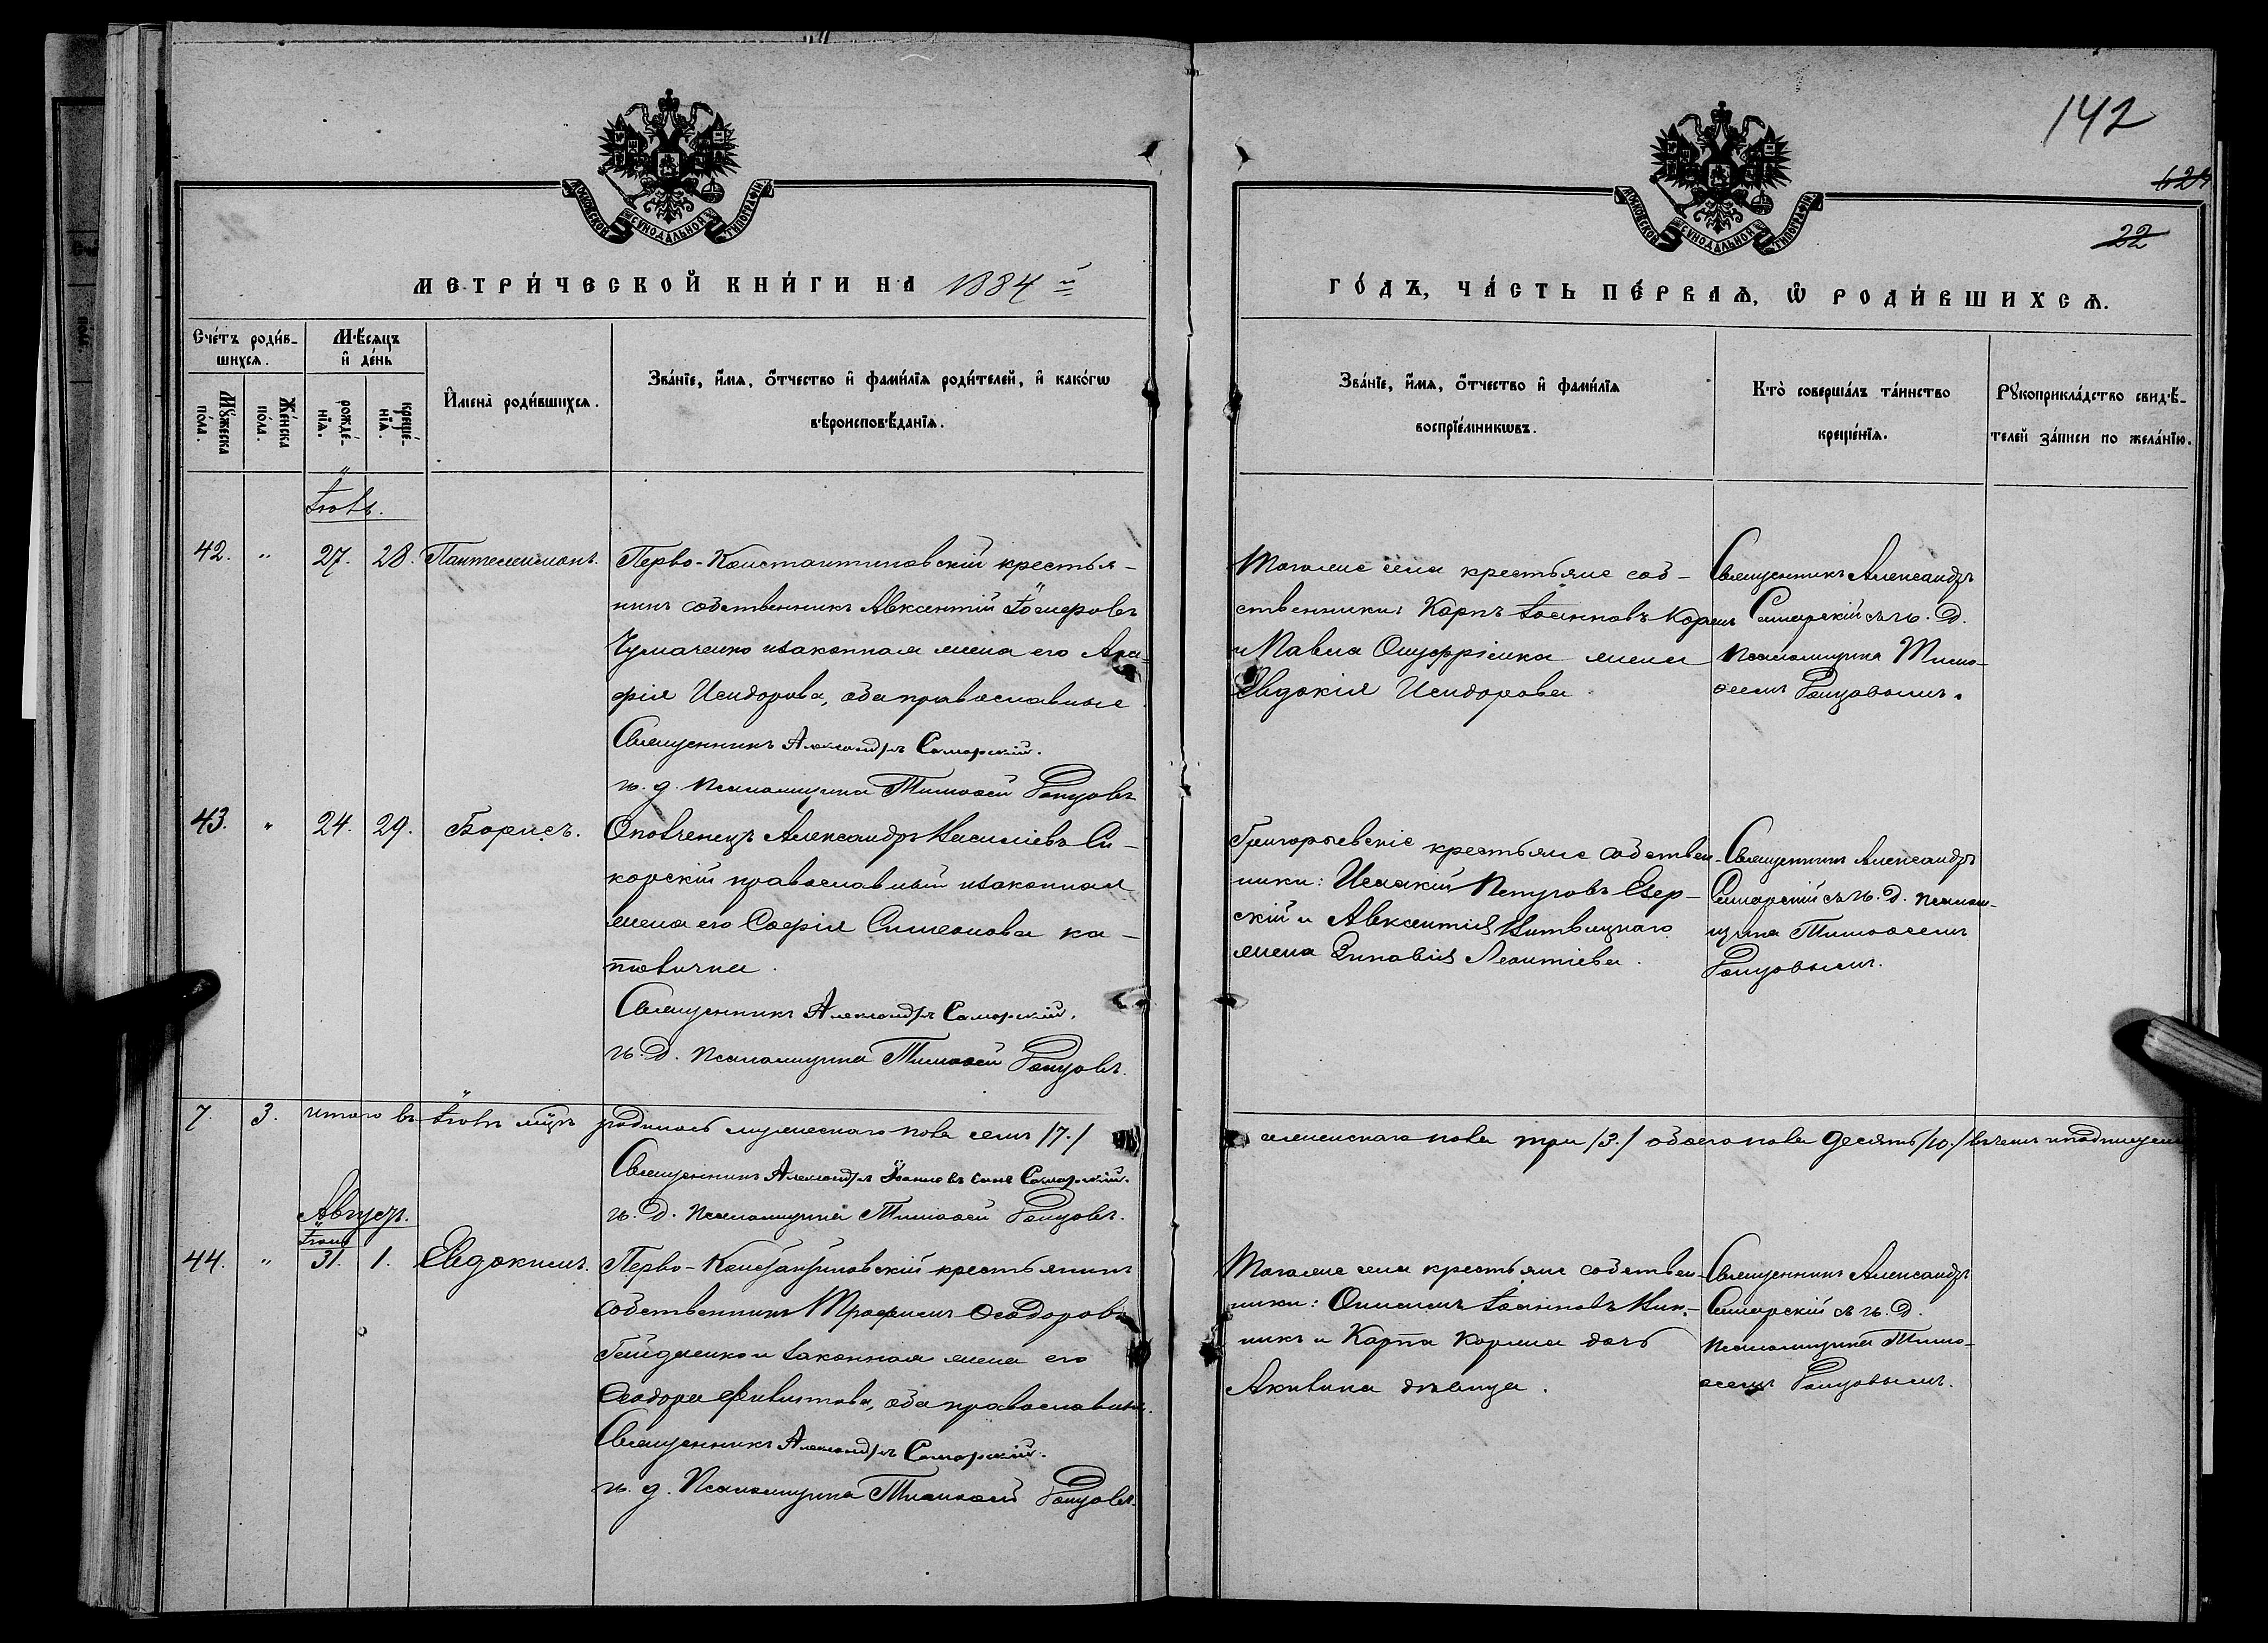 142
624
22
МОСКОВСКОЙ СѴНОДАЛЬНОЙ ТИПОГРАФІИ
МОСКОВСКОЙ СѴНОДАЛЬНОЙ ТИПОГРАФІИ
МЕТРИ́ЧЕСКОЙ КНИ́ГИ НА 1884й
ГО́ДЪ, ЧА́СТЬ ПЕ́РВАѦ, Ѡ РОДИ́ВШИХСѦ.
Сче́тъ роди́в-
шихсѧ.
Мꙋ́жеска по́ла.
Же́нска по́ла.
Мѣ́сѧцъ и де́нь
рожде́-нїѧ.
креще́-нїѧ.
И҆мена̀ роди́вшихсѧ.
Зва́нїе, и҆́мѧ, ѻ҆́тчество и҆ фами́лїѧ роди́телей, и҆ како́гѡ
вѣроисповѣ́данїѧ.
Зва́нїе, и҆́мѧ, ѻ҆́тчество и҆ фами́лїѧ
воспрїе́мникѡвъ.
Кто̀ соверша́лъ та́инство
креще́нїѧ.
Рꙋкоприкла́дство свидѣ́-
телей за́писи по жела́нїю.
Іюль.
42. " 27. 28. Пантелеимонъ.
Перво-Константиновскій крестья-
нинъ собственникъ Авксентій
Чумаченко и законная жена его Ага-
фія Исидорова, оба православные
Священникъ Александръ Самарскій.
и. д. псаломщика Тимоѳей
Тогоже села крестьяне соб-
ственники: Карпъ Іоанновъ
и Павла Онуфріенка жена
Евдокія Исидорова
Священникъ Александръ
Самарскій съ и. д.
псаломщика Тимо-
ѳеемъ
43. " 24. 29. Борисъ.
Ополченецъ Александръ Василіевъ Си-
корскій православный и законная
жена его Софія Симеонова ка-
толичка.
Священникъ Александръ Самарскій.
и. д. псаломщика Тимоѳей
Григорьевскіе крестьяне собствен-
ники: Исаакій Петровъ Езер-
скій и Авксентія Витвицкаго
жена Зиновія Леонтіева.
Священникъ Александръ
Самарскій съ и. д. псалом-
щика Тимоѳеемъ
7. 3. итого въ Іюлѣ мцѣ родилось мужескаго пола семь /7./
женскаго пола три /3./ обоего пола десять /10./ въ чемъ и подписуемся
Священникъ Александръ Іоанновъ сынъ Самарскій.
и. д. псаломщика Тимоѳей
Августъ.
Іюля
44. " 31. 1. Евдокимъ.
Перво-Константиновскій крестьянинъ
собственникъ Трофимъ Ѳеодоровъ
Гайдаенко и законная жена его
Ѳеодора Филиппова, оба православные.
Священникъ Александръ Самарскій.
и. д. Псаломщика Тимоѳей
Тогоже села крестьяне собствен-
ники: Онисимъ Іоанновъ Вин-
никъ и Карпа Коржа дочь
Акилина дѣвица.
Священникъ Александръ
Самарскій съ и. д.
псаломщика Тимо-
ѳеемъ